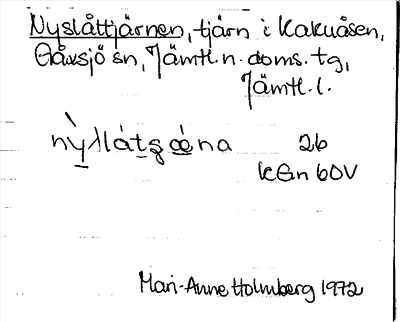 Nyslåttjärnen, tjärn i Kakuåsen,
Gåxsjö sn, Jämtl. n. doms. tg,
Jämtl. l.
2b
KGn 60V
Mari-Anne Holmberg 1972